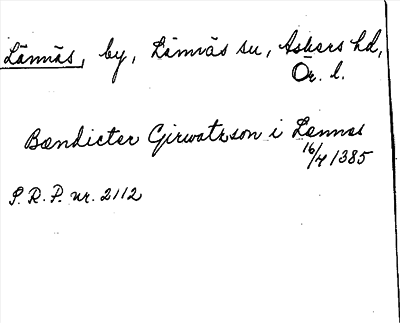 Lännäs, by, Lännäs sn, Askers hd,
Ör. l.
Bændicter Girwatzson i Lænnas
16/4 1385
S. R. P. nr. 2112